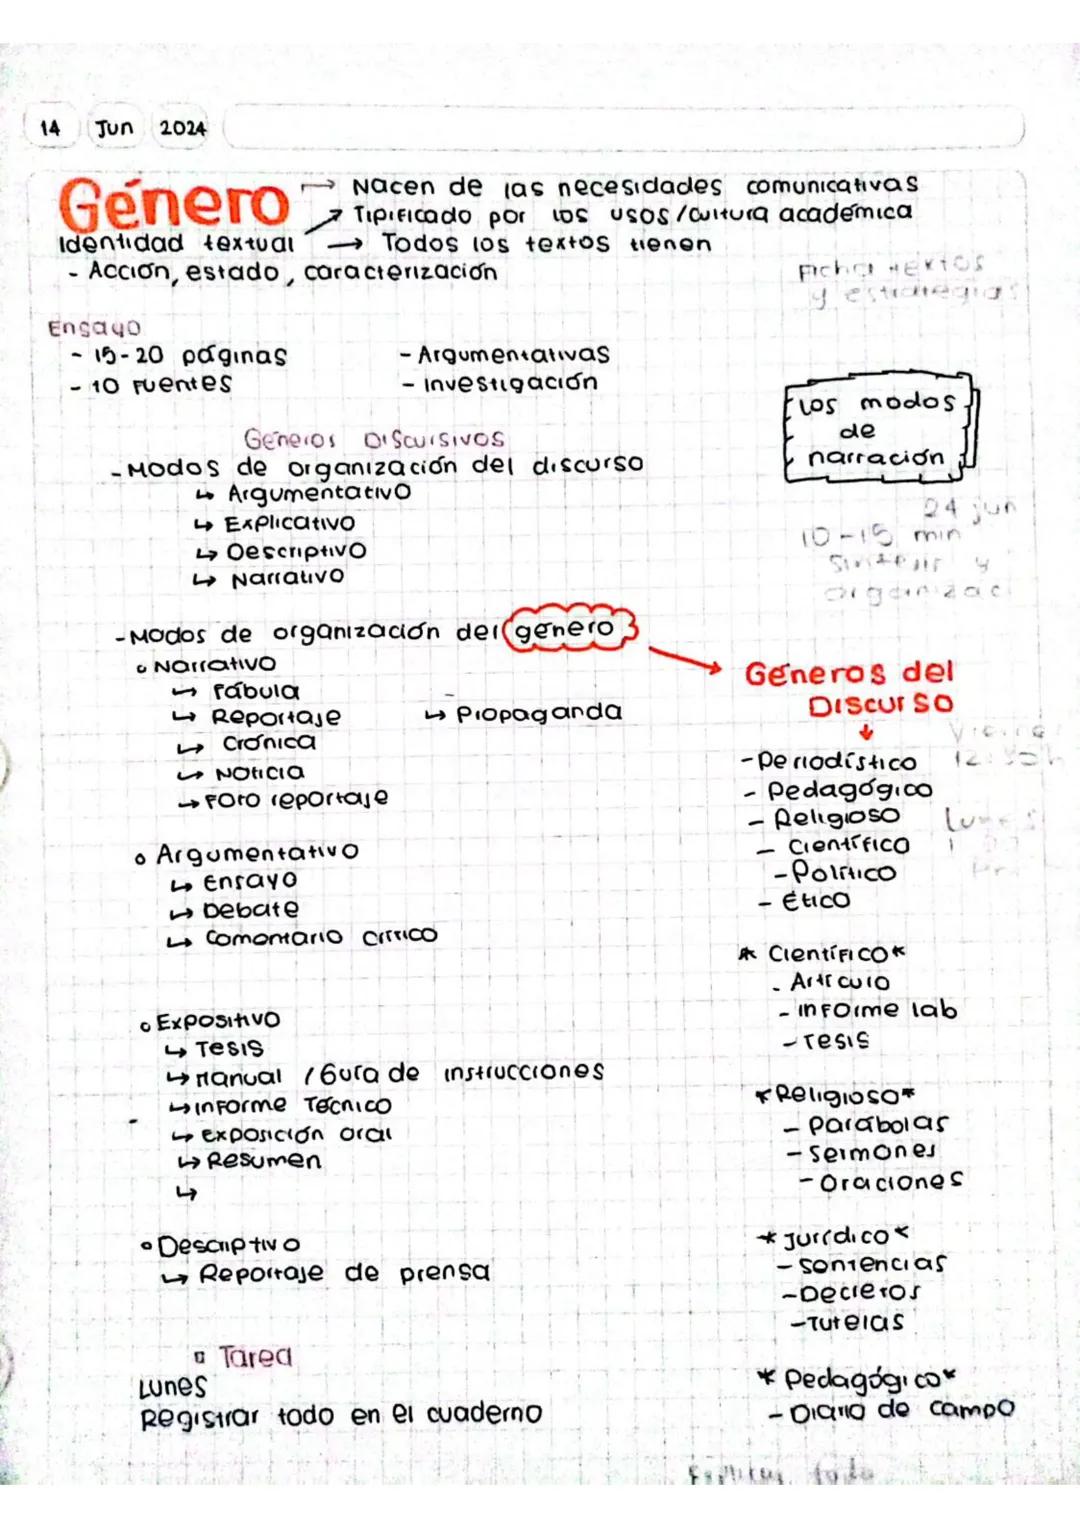 14 Jun 2024
Género
→ Nacen de las necesidades comunicativas
↗ Tipificado por los usos/cultura académica
Identidad textual → Todos los textos tienen
- Acción, estado, caracterización
Ficha textos
y estrategias
Ensayo
- 15-20 páginas
- 10 Fuentes
- Argumentativas
- Investigación
Los modos
de
narración
Géneros Discursivos
- Modos de organización del discurso
↳ Argumentativo
↳ Explicativo
↳ Descriptivo
↳ Narrativo
24 jun
10-15 min
Síntesis y
organizac
- Modos de organización del género
○ Narrativo
↳ Fábula
↳ Reportaje
↳ Crónica
↳ Noticia
→ Foto reportaje
↳ Propaganda
○ Argumentativo
↳ Ensayo
↳ Debate
↳ Comentario crítico
○ Expositivo
↳ Tesis
↳ Manual / Guía de instrucciones
↳ Informe Técnico
↳ Exposición oral
↳ Resumen
↳
• Descriptivo
↳ Reportaje de prensa
Tarea
Lunes
Registrar todo en el cuaderno
Géneros del
Discurso
↓
- Periodístico
- Pedagógico
- Religioso
- Científico
- Político
- Ético
Lunes
* Científico*
- Artículo
- informe lab
- Tesis
*Religioso*
- Parábolas
- Sermones
- Oraciones
* Jurídico*
- Sentencias
- Decretos
- Tutelas
* Pedagógico*
- Diario de campo